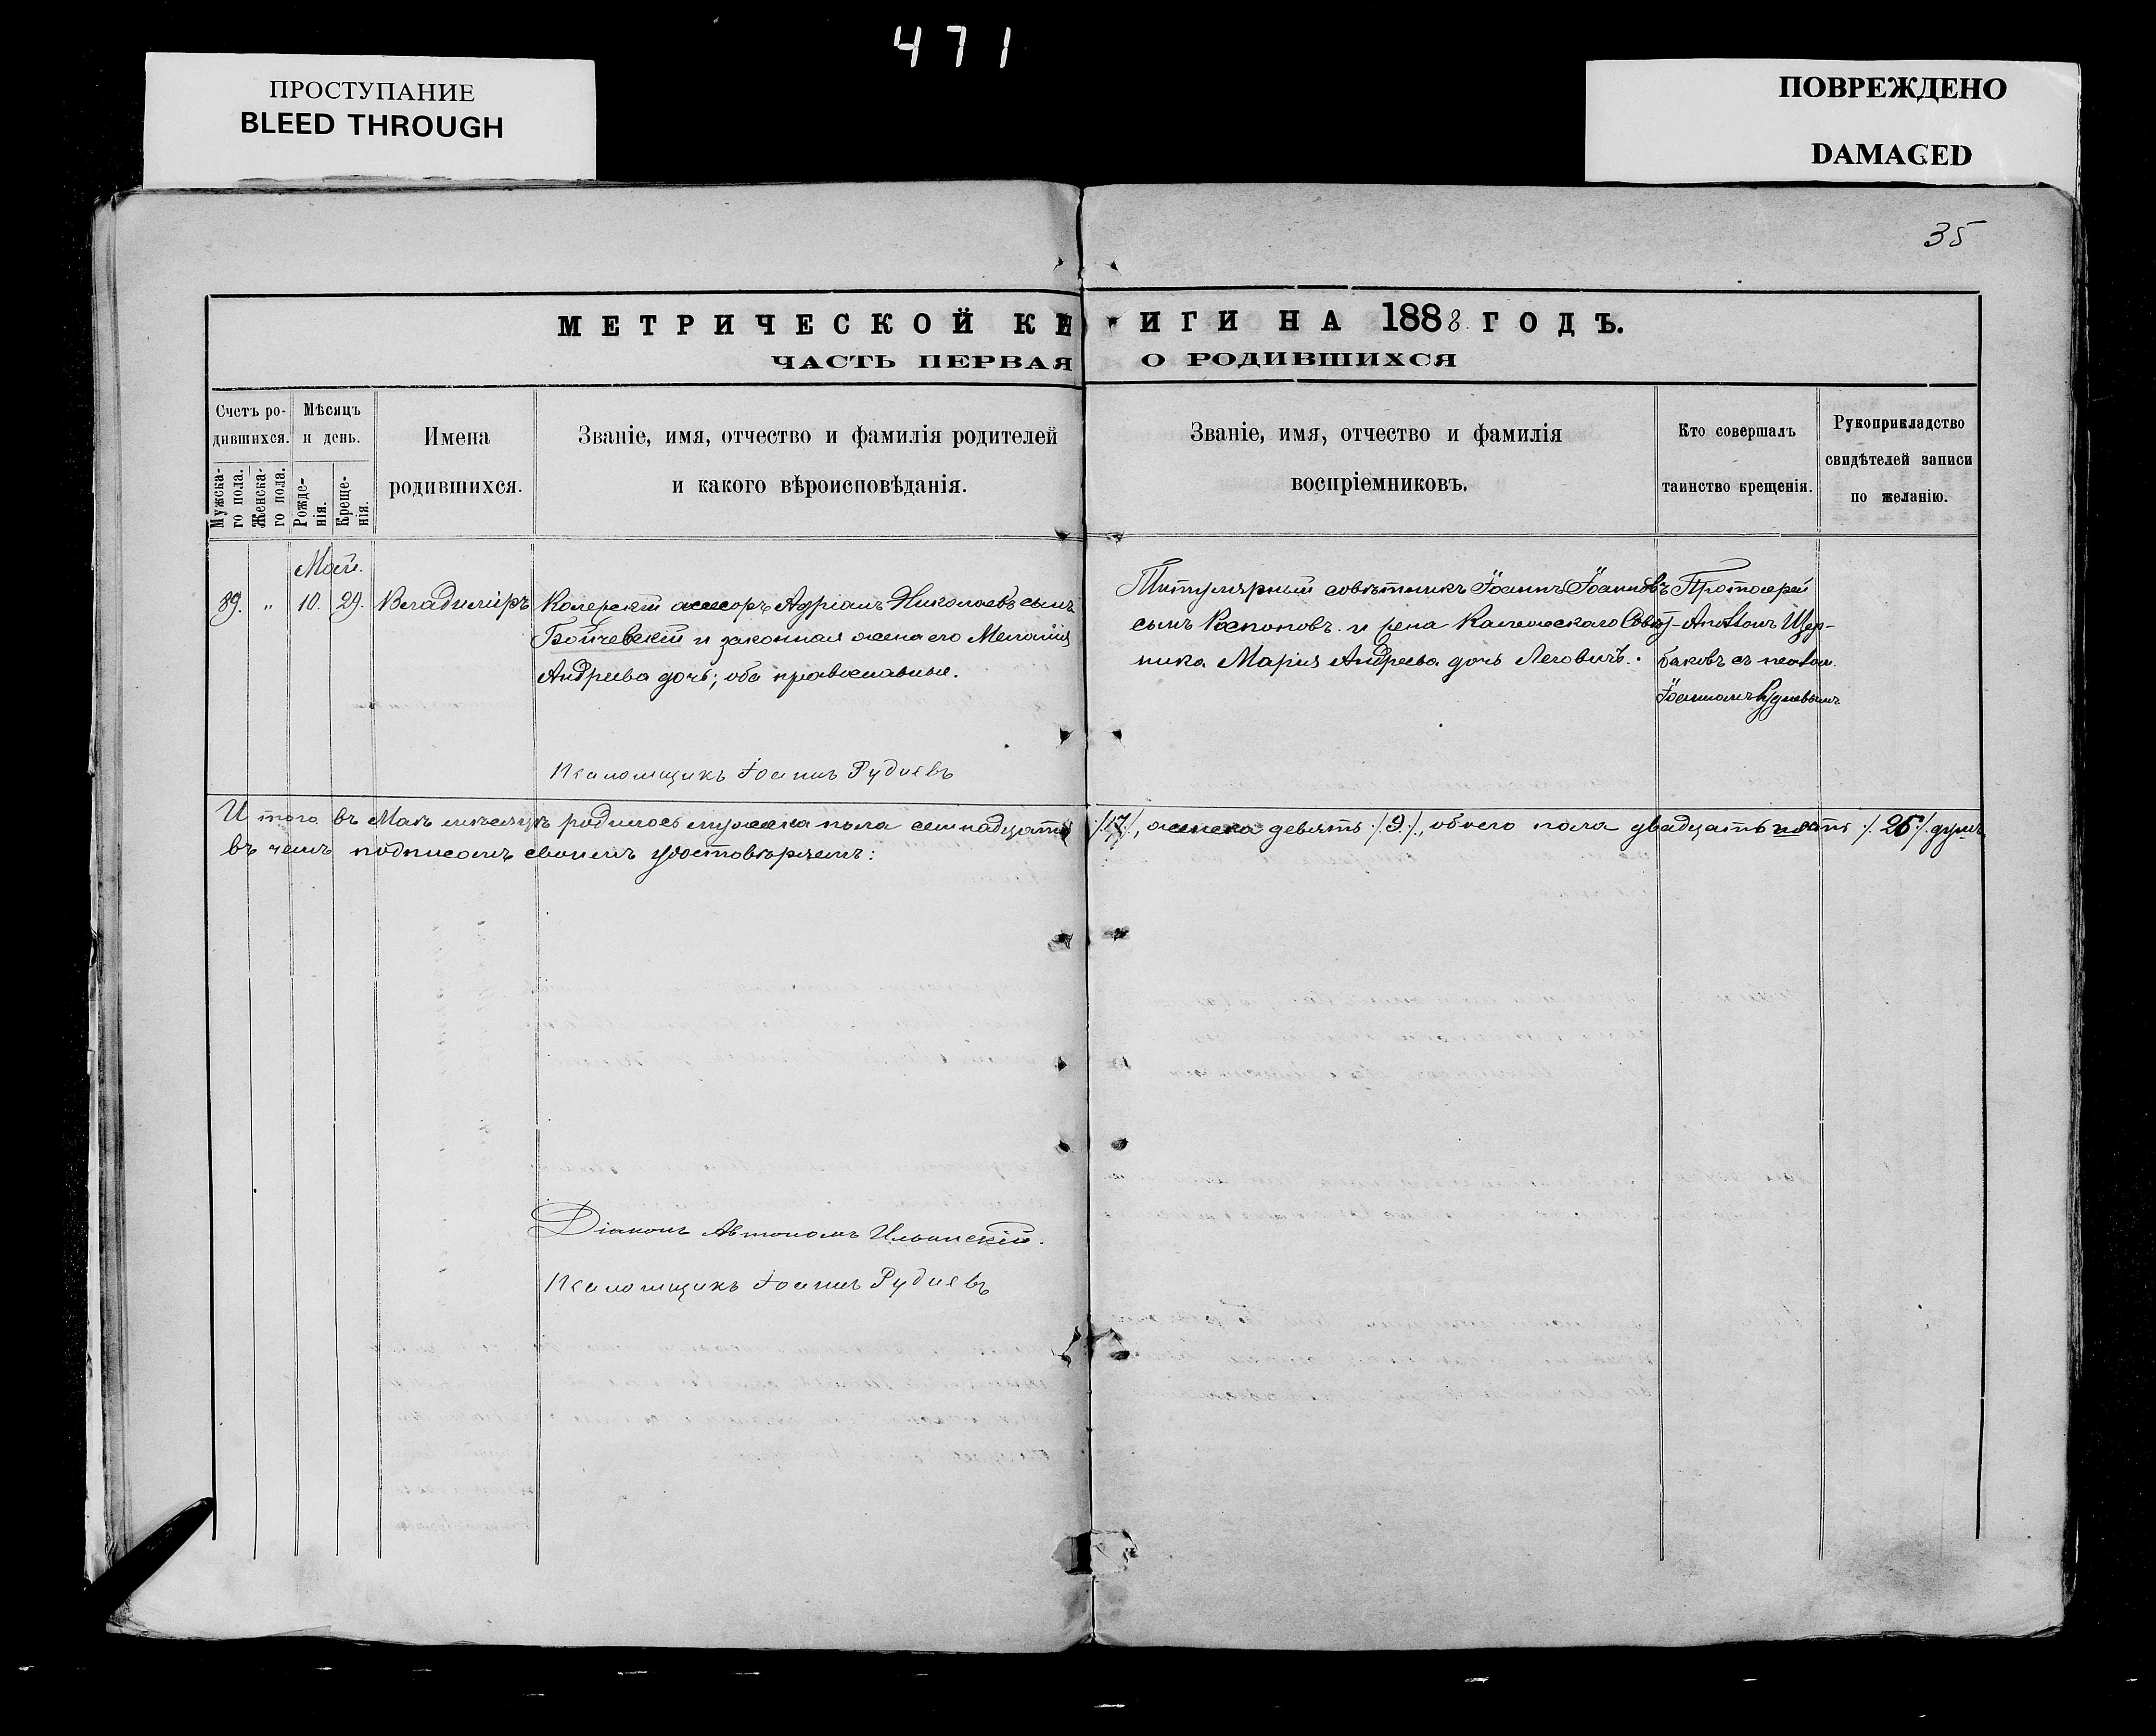 471
ПРОСТУПАНИЕ
BLEED THROUGH
ПОВРЕЖДЕНО
DAMAGED
35
МЕТРИЧЕСКОЙ КНИГИ НА 1888 ГОДЪ.
ЧАСТЬ ПЕРВАЯ О РОДИВШИХСЯ
Счетъ ро-
дившихся.
Мужска-
го пола.
Женска-
го пола.
Мѣсяцъ
и день.
Рожде-
нія.
Креще-
нія.
Имена
родившихся.
Званіе, имя, отчество и фамилія родителей
и какого вѣроисповѣданія.
Званіе, имя, отчество и фамилія
воспріемниковъ.
Кто совершалъ
таинство крещенія.
Рукоприкладство
свидѣтелей записи
по желанію.
Май.
89. " 10. 29. Владиміръ
Колежскій асесоръ Адріанъ Николаевъ сынъ
Бойчевскій и законная жена его Меланія
Андреева дочь; оба православные.
Титулярный совѣтникъ Іоаннъ Іоанновъ
сынъ и жена Совѣт-
ника Марія Андреева дочь
Протоіерей
Антонъ Щер-
баковъ съ псалом.
Іоанномъ Рудневымъ
Псаломщикъ Іоаннъ Рудневъ
Итого въ Маѣ мѣсяцѣ родилось мужеска пола семнадцать /17/, женска девять /9/, обоего пола двадцать /26/ душъ
въ чемъ подписомъ своимъ удостовѣряемъ:
Діаконъ Автономъ Ильинскій.
Псаломщикъ Іоаннъ Рудневъ